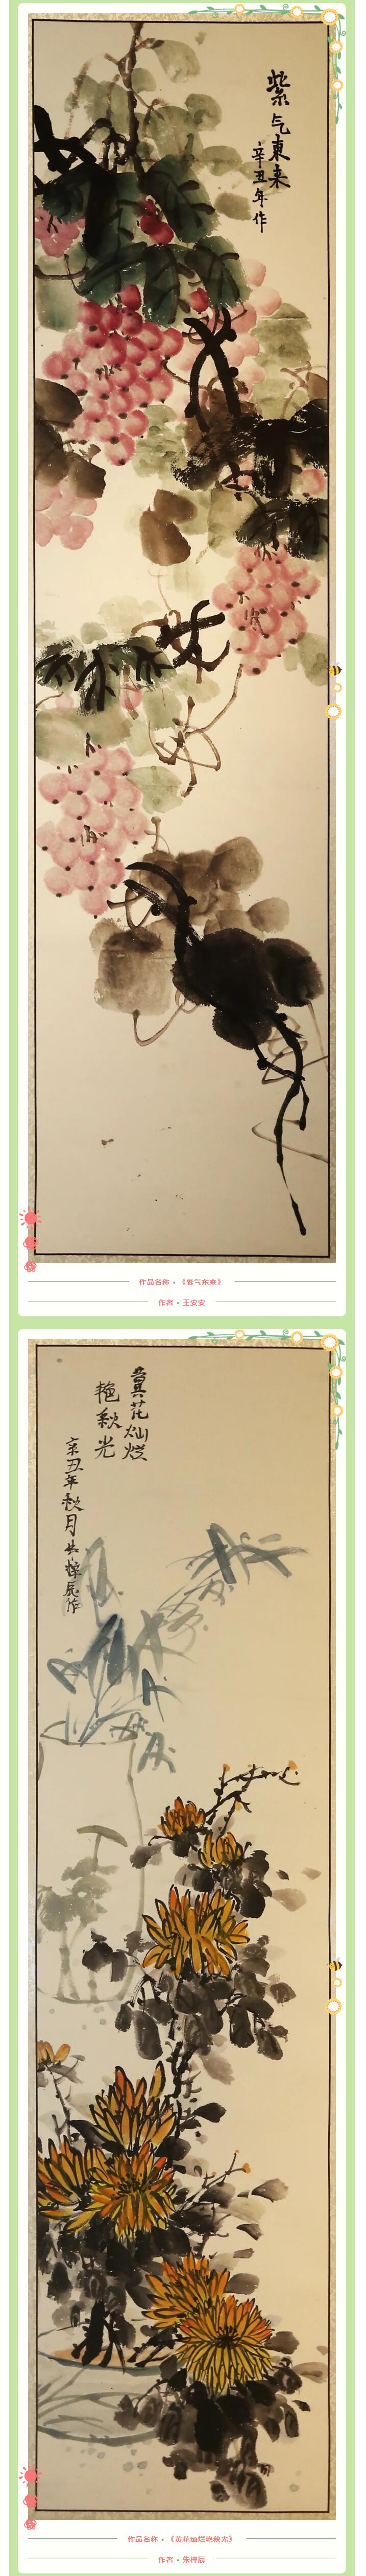 紫气東来
辛丑年作
作品名称·《紫气东来》
作者·王安安
黄花灿烂
艳秋光
辛丑年秋月朱梓辰作
作品名称·《黄花灿烂艳秋光》
作者·朱梓辰